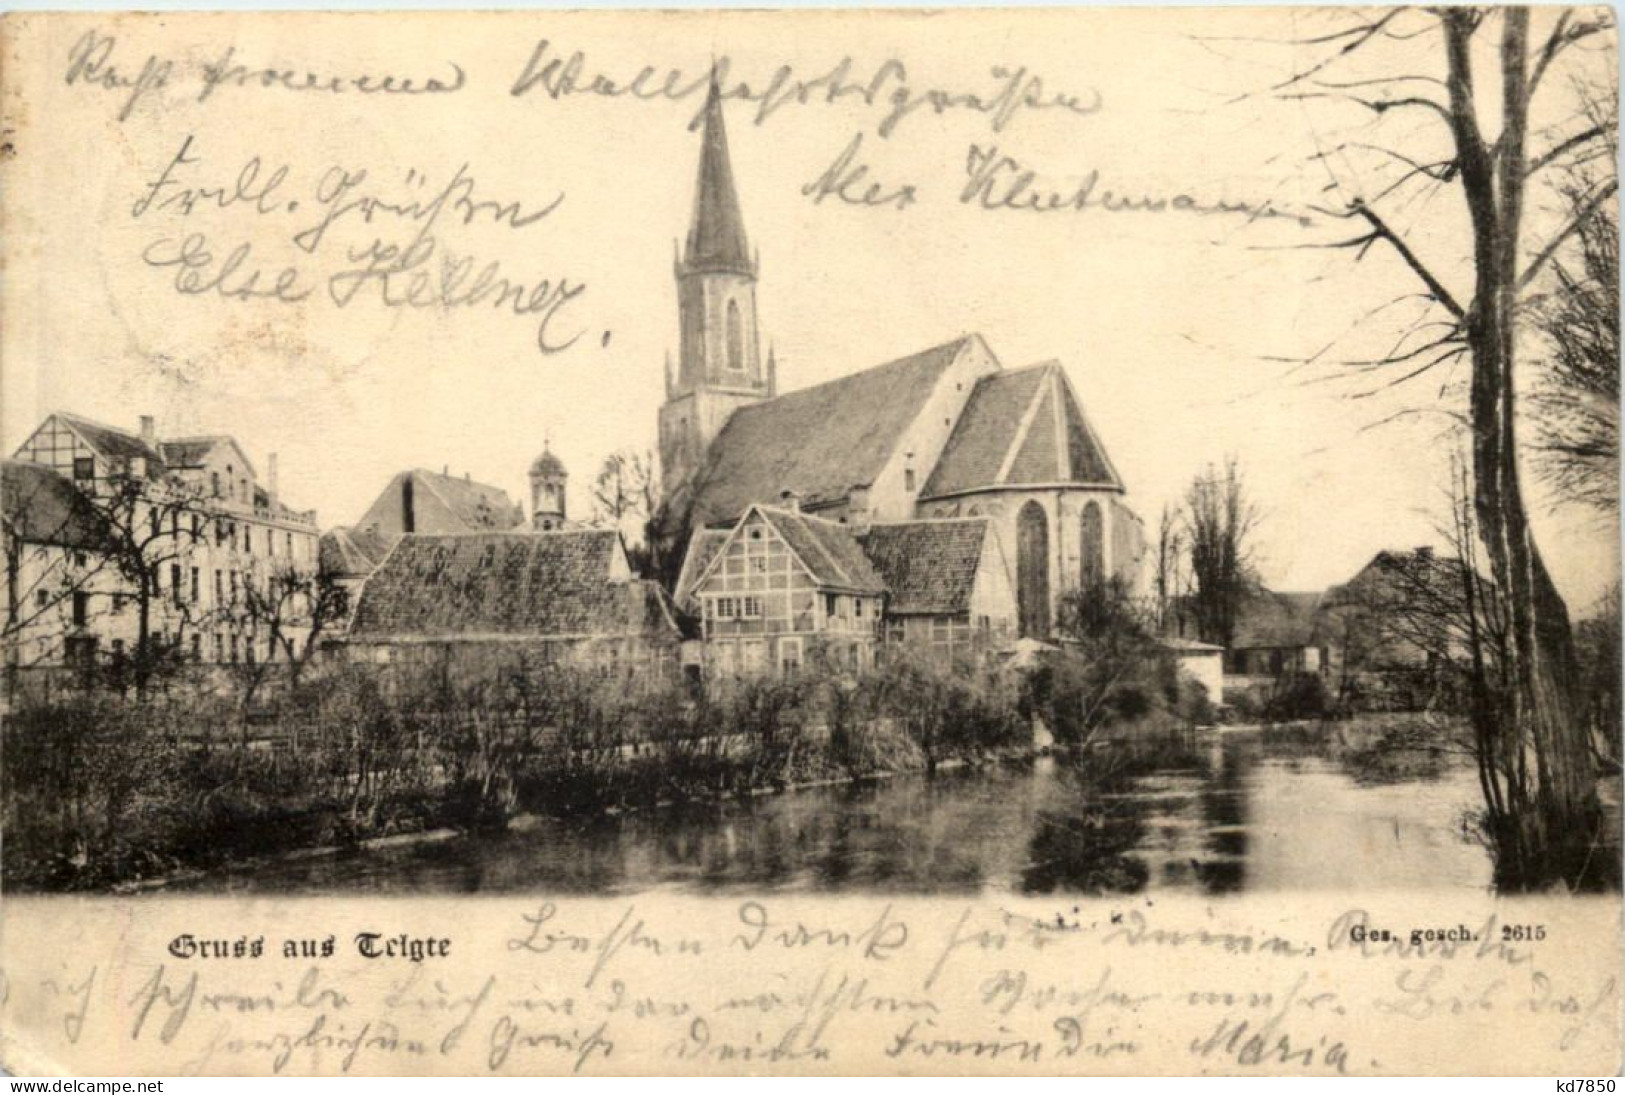 Recht fromme Wallfahrtsgrüße
Alex Klutemann
Frdl. Grüßen
Else Kellner.
Gruss aus Telgte
Ges. gesch. 2615
Besten Dank für deine Karte
ich schreibe Euch in der nächsten Woche mehr. Bis dah
herzlichen Gruß Deine Freundin Maria.
www.delcampe.net
kd7850